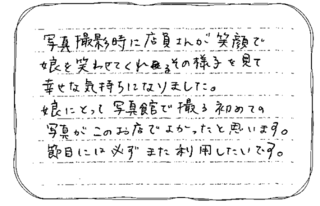 写真撮影時に店員さんが笑顔で
娘を笑わせてくれるその様子を見て
幸せな気持ちになりました。
娘にとって写真館で撮る初めての
写真がこのお店でよかったと思います。
節目には必ずまた利用したいです。